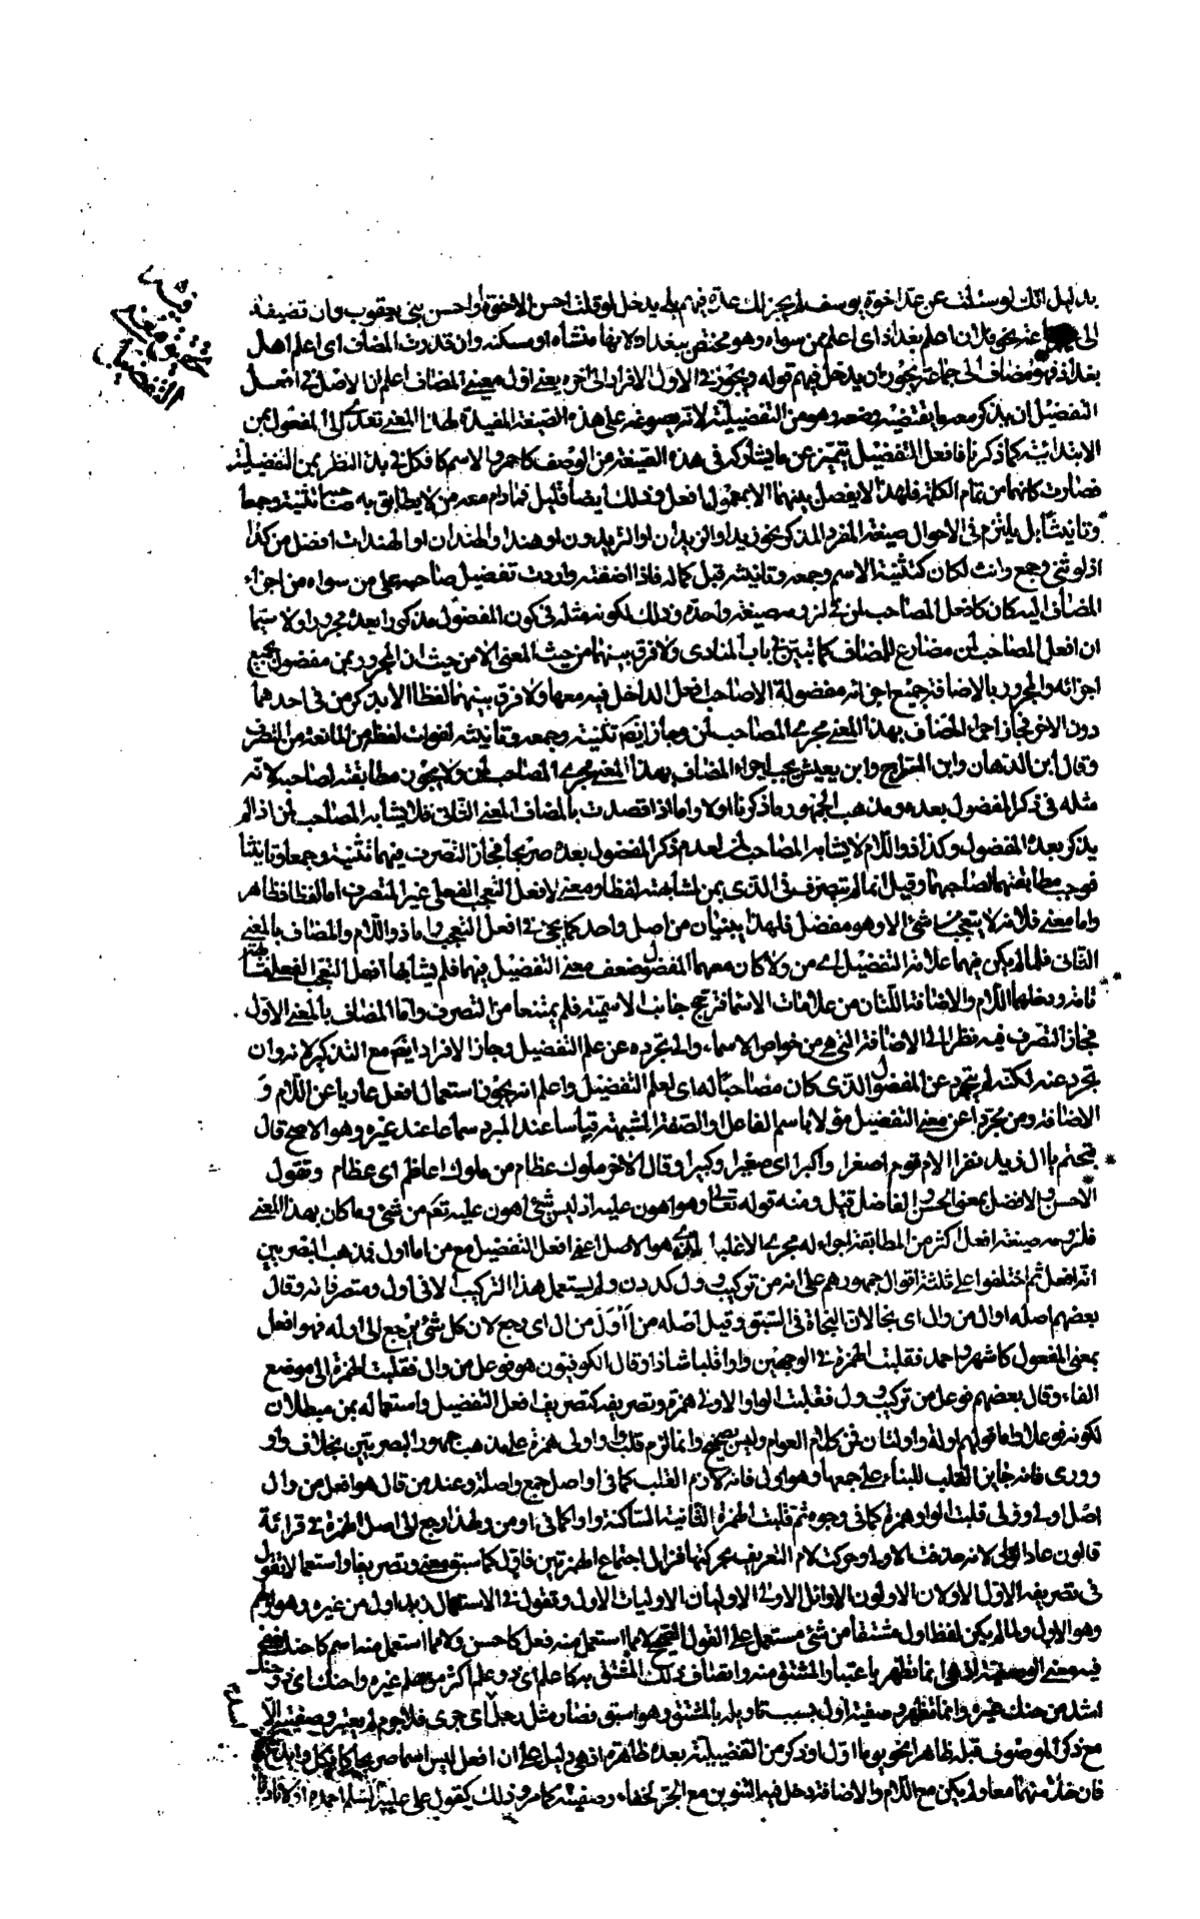 بدليل انك لو سئلت عن عدد اخوة يوسف لم يجز لك عده فيهم بلى يدخل لو قلت احسن الاخوة او احسن بني يعقوب وان تضيفه
الى غيره نحو فلان اعلم بغداد اى اعلم ممن سواه وهو مختص ببغداد لانها منشأه او مسكنه وان قدرت المضاف اى اعلم اهل
بغداد فهو مضاف الى جماعة يجوز ان يدخل فيهم قوله ويجوز فى الاول الافراد الى اخره يعنى اول معنى المضاف اعلم ان الاصل فى افعل
التفضيل ان يذكر معه ما يقتضيه وضعه وهو من التفضيلية لانه بصوغه على هذه الصيغة المفيدة لهذا المعنى تعدى الى المفعول بمن
الابتدائية كما ذكرنا فافعل التفضيل يتميز عن ما يشاركه فى هذه الصيغة من الوصف كاحمر والاسم كافكل فى بدء النظر بمن التفضيلية
فصارت كانها من تمام الكلمة فلهذا لا يفصل بينهما الا بمعمول افعل وذلك ايضا قليل فما دام معه من لا يطابق به صاحبه تثنية وجمعا
وتانيثا بل يلتزم فى الاحوال صيغة المفرد المذكر نحو زيد او الزيدان او الزيدون او هند او الهندان او الهندات افضل من كذا
اذ لو ثنى وجمع وانث لكان كتثنية الاسم وجمعه وتانيثه قبل كماله فاذا اضفته واردت تفضيل صاحبه على من سواه من اجزاء
المضاف اليه كان كافعل المصاحب لمن فى لزومه صيغة واحدة وذلك لكونه مثله فى كون المفضول مذكورا بعده مجرورا ولا سيما
ان افعل المصاحب لمن مضارع للمضاف كما تبين فى باب المنادى ولا فرق بينهما من حيث المعنى الا من حيث ان المجرور بمن مفضول بجميع
اجزائه والمجرور بالاضافة جميع اجزائه مفضولة الا صاحب افعل الداخل فيه معها ولا فرق بينهما لفظا الا بذكر من فى احدهما
دون الاخر فجاز اجراء المضاف بهذا المعنى مجرى المصاحب لمن وجاز ايضا تثنيته وجمعه وتانيثه لفوات لفظة من المانعة من التصرف
وقال ابن الدهان وابن السراج وابن يعيش يجب اجراء المضاف بهذا المعنى مجرى المصاحب لمن ولا يجوز مطابقته لصاحبه لانه
مثله فى ذكر المفضول بعده ومذهب الجمهور ما ذكرنا اولا واما اذا قصدت بالمضاف المعنى الثانى فلا يشابه المصاحب لمن اذ لم
يذكر بعده المفضول وكذا ذو اللام لا يشابه المصاحب لمن لعدم ذكر المفضول بعده صريحا فجاز التصرف فيهما تثنية وجمعا وتانيثا
فوجب مطابقتهما لصاحبهما وقيل انما لم يتصرف فى الذى بمن لمشابهته لفظا ومعنى لافعل التعجب الفعلى غير المتصرف اما لفظا فظاهر
واما معنى فلانه لا يتعجب من شئ الا وهو مفضل فلهذا يبنيان من اصل واحد كما يجئ فى افعل التعجب واما ذو اللام والمضاف بالمعنى
الثانى فلما لم يكن فيهما علامة التفضيل اى من ولا كان معهما المفضول ضعف معنى التفضيل فيهما فلم يشابها افعل التعجب الفعلى مشابهة
تامة ودخلهما اللام والاضافة اللتان من علامات الاسماء فترجح جانب الاسمية فلم يمتنعا من التصرف واما المضاف بالمعنى الاول
فجاز التصرف فيه نظرا الى الاضافة التى هى من خواص الاسماء والى تجرده عن علم التفضيل وجاز الافراد ايضا مع التذكير لانه وان
تجرد عنه لكنه لم يتجرد عن المفضول الذى كان مصاحبا له اى لعلم التفضيل واعلم انه يجوز استعمال افعل عاريا عن اللام و
الاضافة ومن مجردا عن معنى التفضيل مؤولا باسم الفاعل او الصفة المشبهة قياسا عند المبرد سماعا عند غيره وهو الاصح قال
قبحتم يا ال زيد نفرا الام قوم اصغرا واكبرا اى صغيرا وكبيرا وقال الاخر ملوك عظام من ملوك اعاظم اى عظام وتقول
الاحسن والافضل بمعنى الحسن والفاضل قيل ومنه قوله تعالى وهو اهون عليه اذ ليس شئ اهون عليه تعالى من شئ وما كان بهذا المعنى
فلزومه صيغة افعل اكثر من المطابقة اجراء له مجرى الاغلب الذى هو الاصل اعنى افعل التفضيل مع من اما اول فمذهب البصريين
انه افعل ثم اختلفوا على ثلثة اقوال جمهورهم على انه من تركيب وول كددن ولم يستعمل هذا التركيب الا فى اول ومتصرفاته وقال
بعضهم اصله اوأل من وأل اى نجا لان النجاة فى السبق وقيل اصله من أأول من ال اى رجع لان كل شئ يرجع الى اوله فهو افعل
بمعنى المفعول كاشهر واحمد فقلبت الهمزة فى الوجهين واوا قلبا شاذا وقال الكوفيون هو فوعل من وأل فقلبت الهمزة الى موضع
الفاء وقال بعضهم فوعل من تركيب وول فقلبت الواو الاولى همزة وتصريفه كتصريف افعل التفضيل واستعماله بمن مبطلان
لكونه فوعلا واما قولهم اولة واولتان فمن كلام العوام وليس بصحيح وانما لزم قلب واو اولى همزة على مذهب جمهور البصريين بخلاف واو
وورى فانه جاز القلب للبناء على جمعها وهو اول فانه لازم القلب كما فى اواصل جمع واصلة وعند من قال هو افعل من وأل
اصل اولى وؤلى قلبت الواو همزة كما فى وجوه ثم قلبت الهمزة الثانية الساكنة واوا كما فى اومن ولهذا رجع الى اصل الهمزة فى قراءة
قالون عادا الولى لانه حذفت الاولى وحركت لام التعريف بحركتها فزال اجتماع الهمزتين فاول كاسبق معنى وتصريفا واستعمالا تقول
فى تصريفه الاول الاولان الاولون الاوائل الاولى الاوليان الاوليات الاول وتقول فى الاستعمال زيد اول من غيره وهو اولهم
وهو الاول ولما لم يكن لفظ اول مشتقا من شئ مستعمل على القول الصحيح لا مما استعمل منه فعل كاحسن ولا مما استعمل منه اسم كاحنك خفى
فيه معنى الوصفية اذ هى انما تظهر باعتبار المشتق منه واتصاف ذلك المشتق به كاعلم اى ذو علم اكثر من علم غيره واحنك اى ذو حنك
اشد من حنك غيره وانما تظهر وصفية اول بسبب تاويله بالمشتق وهو اسبق فصار مثل رجل اى جرى فلا جرم لم يعتبر وصفيته الا
مع ذكر الموصوف قبله ظاهرا نحو يوما اول او ذكر من التفضيلية بعده ظاهرة اذ هى دليل على ان افعل ليس اسما صريحا كافكل وايدع
فان خلا منهما معا ولم يكن مع اللام والاضافة دخل فيه التنوين مع الجر لخفاء وصفيته كما مر وذلك كقول على عليه السلم احمده اولا